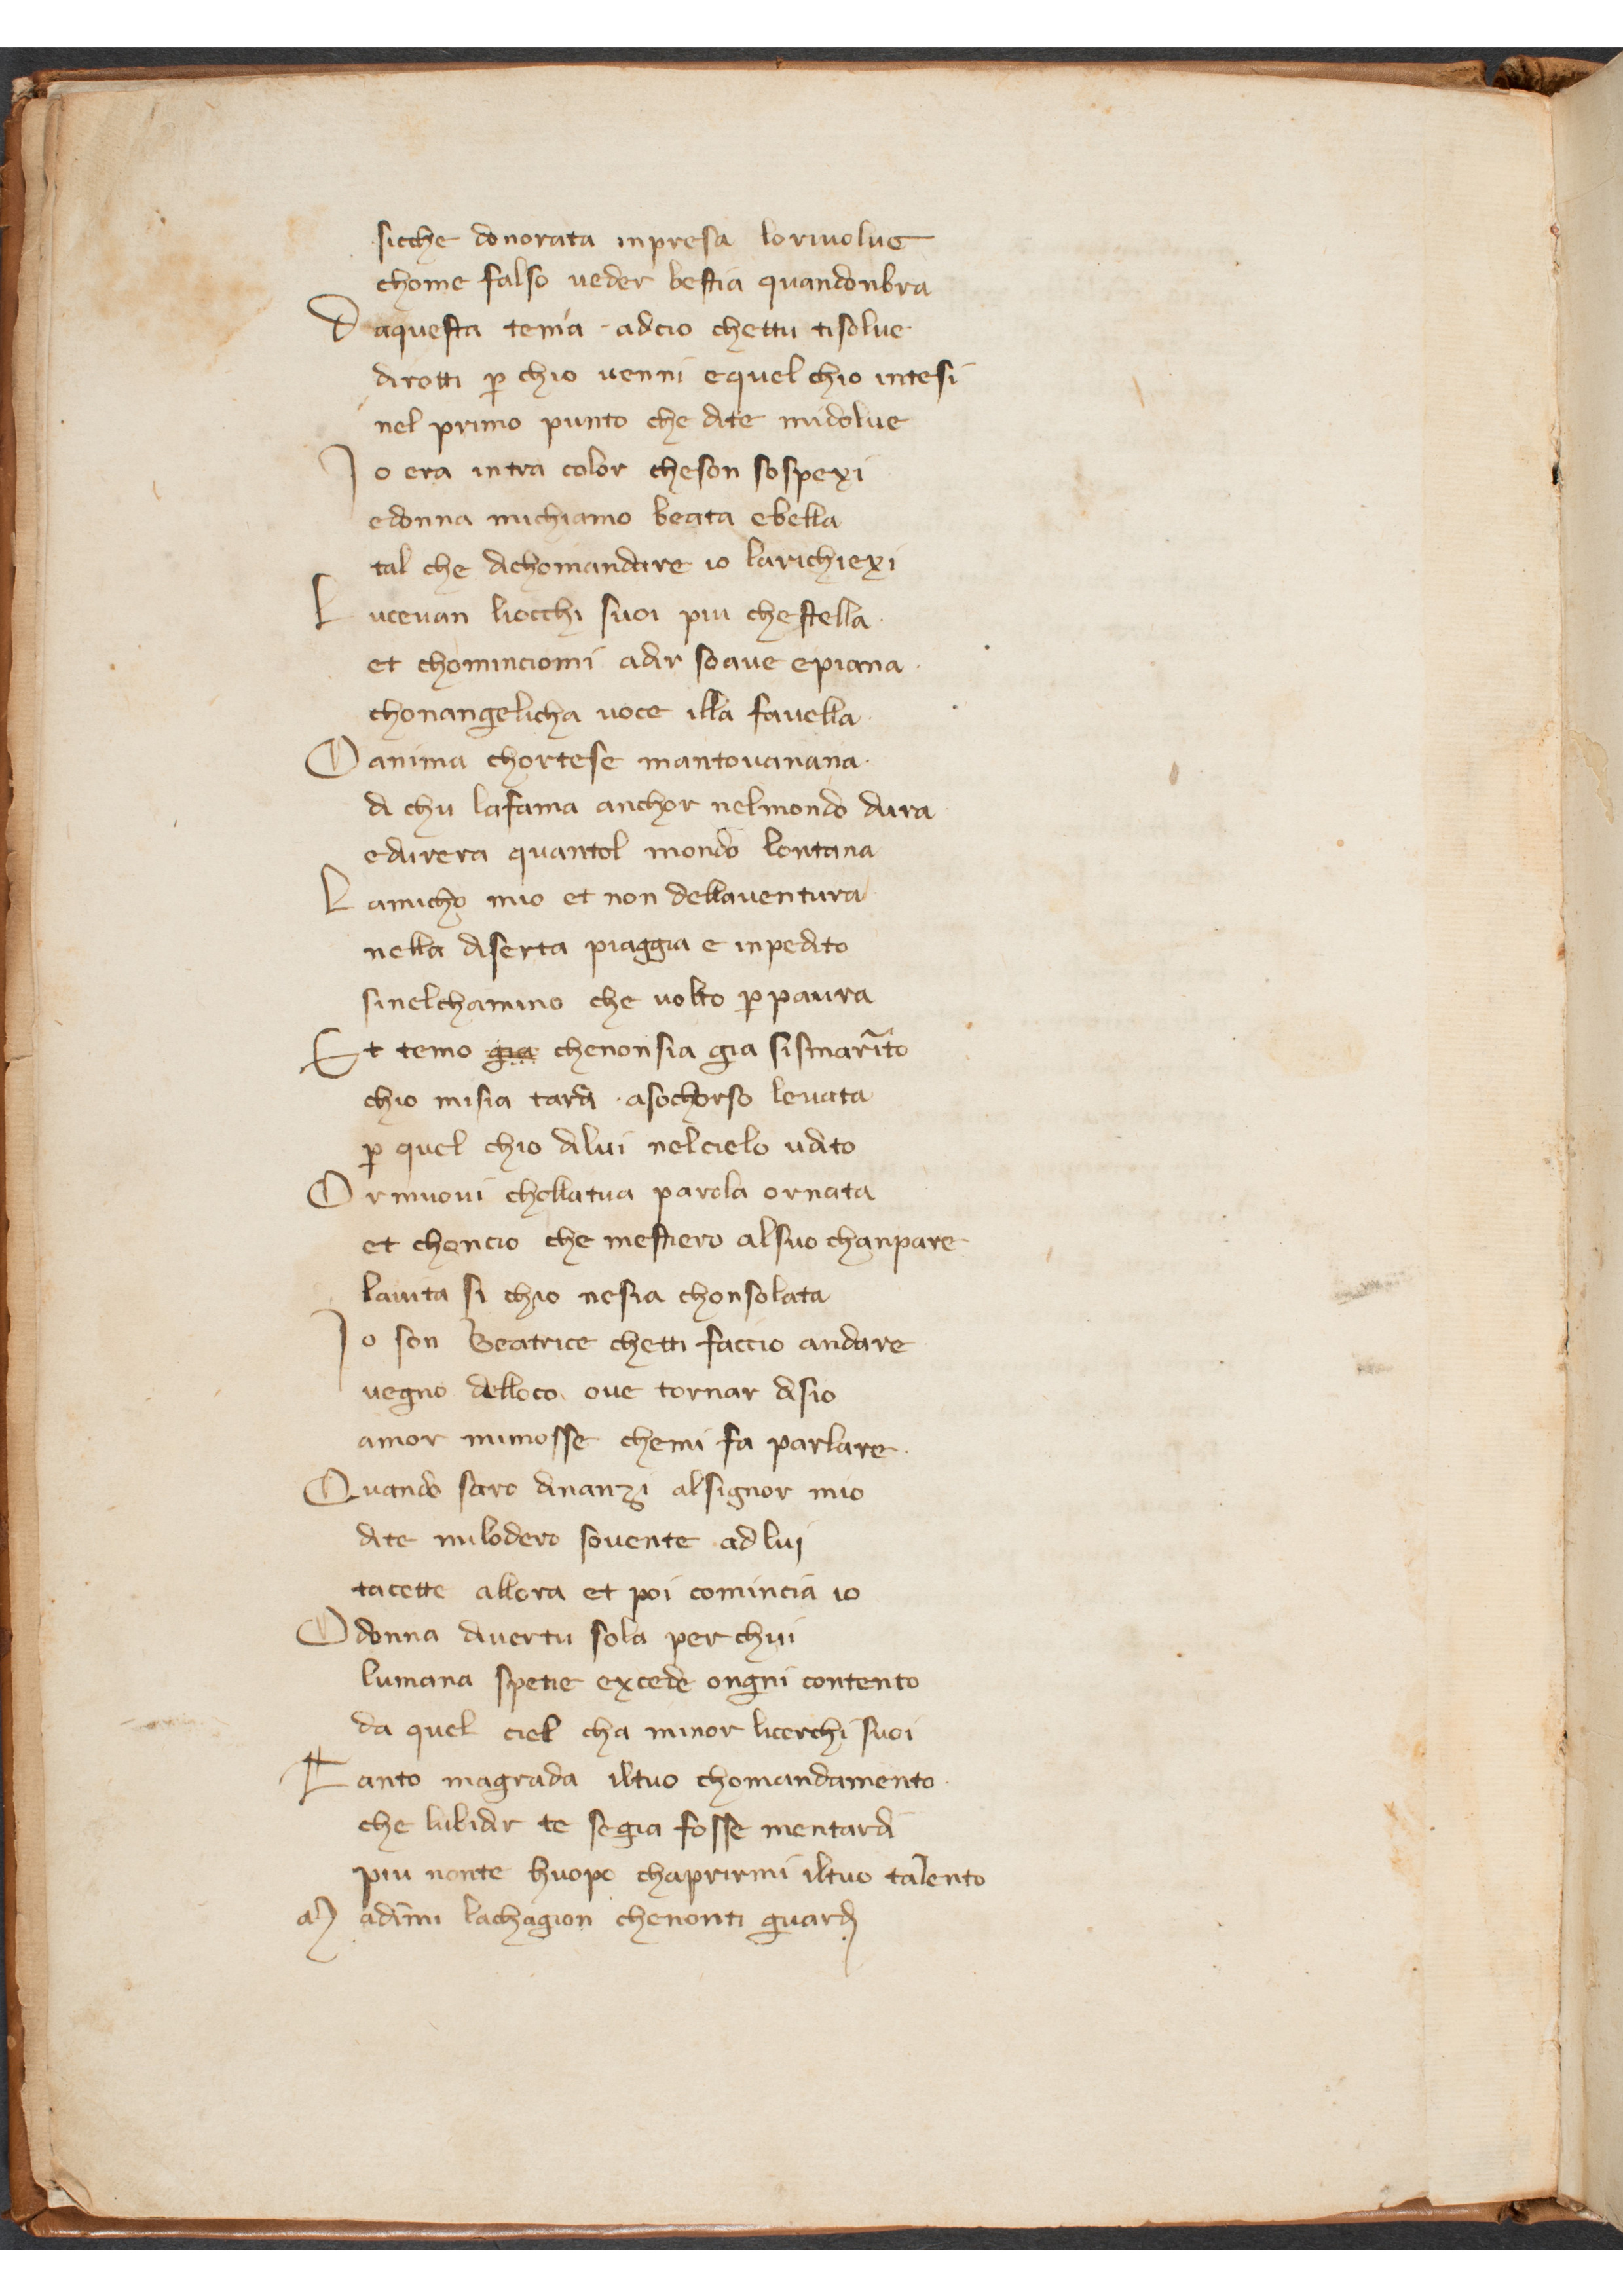 sicche donorata inpresa lorivolve
chome falso veder bestia quandonbra
D aquesta tema adcio chettu tisolve
dirotti p chio venni equel chio intesi
nel primo punto che dite midolve
J o era intra color cheson sospexi
edonna michiamo beata ebella
tal che dichomandare io larichiexi
L ucevan liocchi suoi piu chestella
et chominciomi adir soave epiana
chonangelicha voce illa favella
O anima chortese mantovanana
di chu lafama anchor nelmondo dura
edurera quantol mondo lontana
L amicho mio et non dellaventura
nella diserta piaggia e inpedito
sinelchamino che volto p paura
Et temo gia chenonsia gia sismarito
chio misia tardi asochorso levata
p quel chio dilui nelcielo udito
O rmuovi chollatua parola ornata
et choncio che mestiero alsuo chanpare
lauita si chio nesia chonsolata
J o son Beatrice chetti faccio andare
vegno delloco ove tornar disio
amor mimosse chemi fa parlare
Quando saro dinanzi alsignor mio
dite milodero sovente adlui
tacette allora et poi comincia io
O donna divertu sola per chui
lumana spetie excede ongni contento
da quel ciel cha minor licerchi suoi
T anto magrada iltuo chomandamento
che lubidir te segia fosse mentardi
piu nonte huopo chaprirmi iltuo talento
M adimi lachagion chenonti guardi